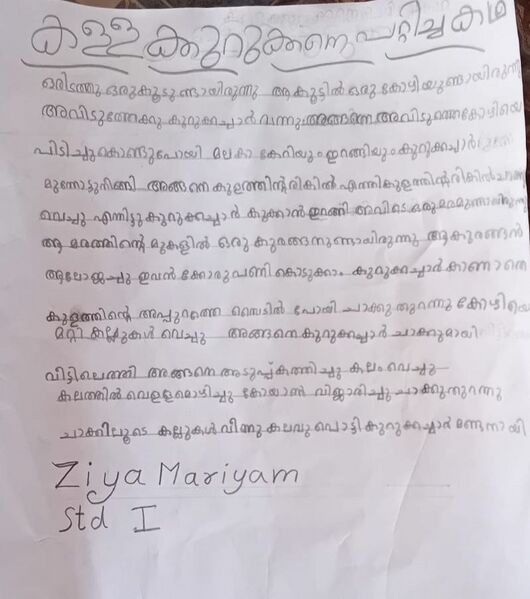 കള്ള ക്കുറുക്കനെ പറ്റിച്ച കഥ
ഒരിടത്തു ഒരുകൂടുണ്ടായിരുന്നു ആകൂട്ടിൽ ഒരു കോഴിയുണ്ടായിരുന്നു
അവിടുത്തേക്കു കുറുക്കച്ചാർ വന്നു അങ്ങനെ അവിടുത്തെകോഴിയെ
പിടിച്ചുകൊണ്ടുപോയി മലകാ കേറിയും ഇറങ്ങിയും കുറുക്കച്ചാർ
മുന്നോട്ടുനിങ്ങി അങ്ങനെ കുളത്തിന്റെവികിൽ എത്തികുളത്തിന്റെവികിൽ ചാക്കു
വെച്ചു എന്നിട്ടു കുറുക്കച്ചാർ കുക്കാൻ ഇറങ്ങി അവിടെ ഒരുമരമുണ്ടായിരുന്നു
ആ മരത്തിന്റെ മുകളിൽ ഒരു കുരങ്ങനുണ്ടായിരുന്നു ആകുരങ്ങൻ
ആലോജ്ജച്ചു ഇവൻ ക്കോരുപണി കൊടുക്കാം കുറുക്കച്ചാർ കാണാതെ
കുളത്തിന്റെ അപ്പുറത്തെ സൈടിൽ പോയി ചാക്കു തുറന്നു കോഴിയെ
മാറ്റി കല്ലുകൾ വെച്ചു അങ്ങനെ കുറുക്കച്ചാർ ചാക്കുമായി
വീട്ടിലെത്തി അങ്ങനെ അടുപ്പ്കത്തിച്ചു കലം വെച്ചു
കലത്തിൽ വെള്ളമൊഴിച്ചു കോയാൺ വിജ്ജാരിച്ചു ചാക്കുതുറന്നു
ചാക്കിലൂടെ കല്ലുകൾ വീണു കലവു പൊട്ടി കുറുക്കച്ചാർ മണ്ടനായി
Ziya Mariyam
Std I